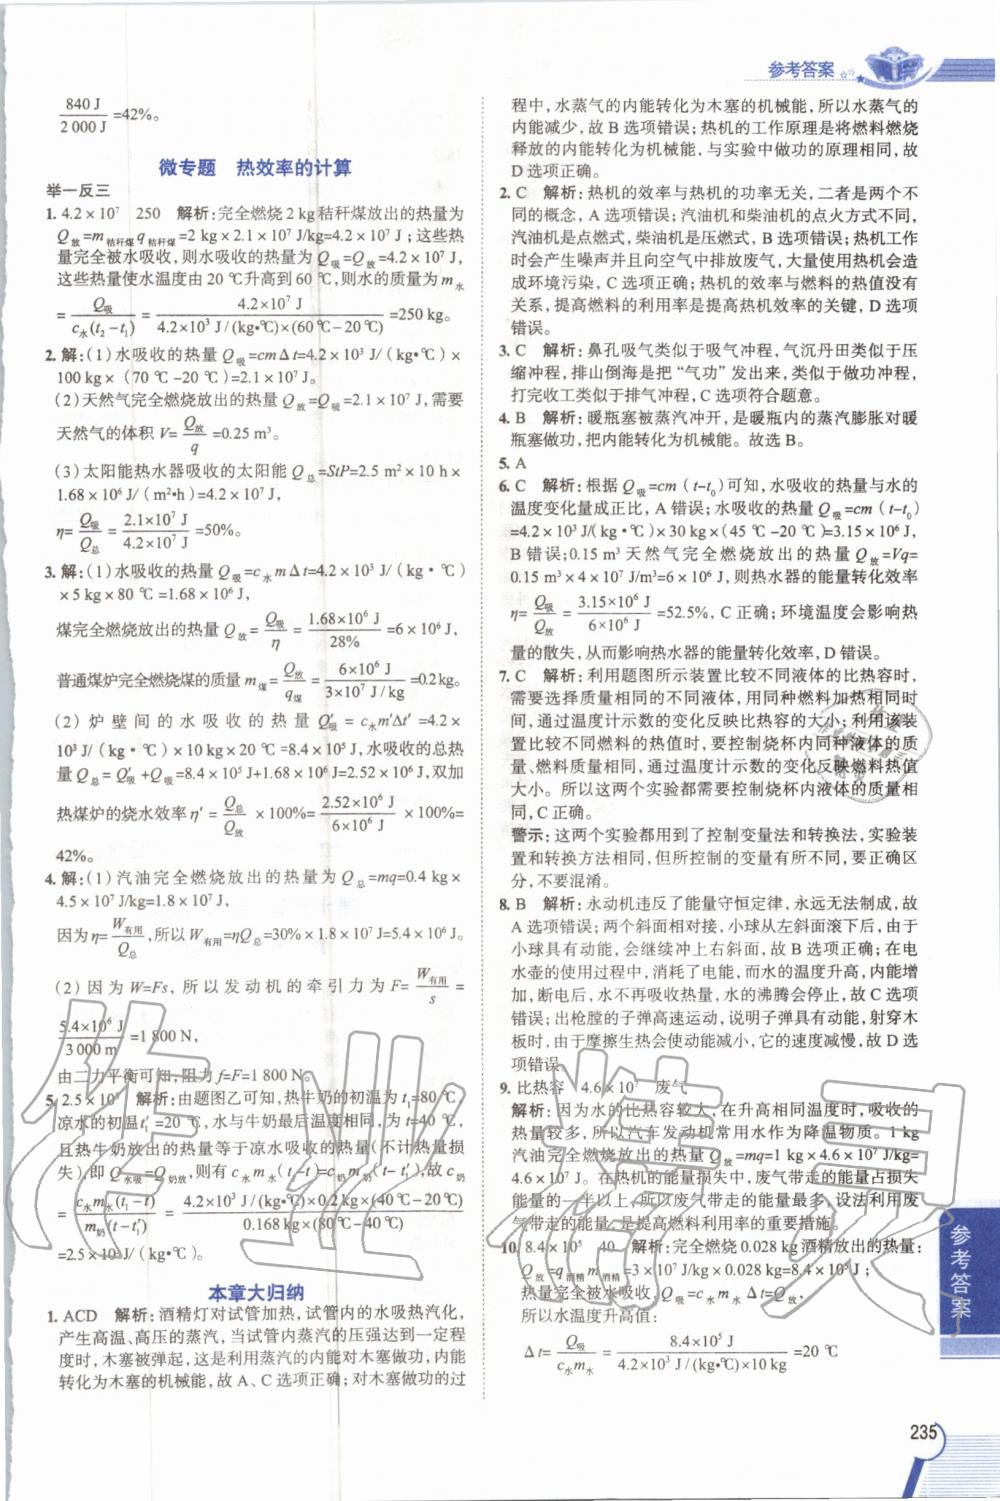 参考答案
840 J / 2 000 J =42%。
微专题 热效率的计算
举一反三
1. 4.2×10⁷ 250 解析:完全燃烧2 kg秸秆煤放出的热量为
Q放=m秸秆煤q秸秆煤=2 kg×2.1×10⁷ J/kg=4.2×10⁷ J;这些热
量完全被水吸收,则水吸收的热量为Q吸=Q放=4.2×10⁷ J,
这些热量使水温度由20 ℃升高到60 ℃,则水的质量为m水
= Q吸 / c水(t₂-t₁) = 4.2×10⁷ J / 4.2×10³ J/(kg•℃)×(60 ℃-20 ℃) =250 kg。
2. 解:(1)水吸收的热量Q吸=cmΔt=4.2×10³ J/(kg•℃)×
100 kg×(70 ℃-20 ℃)=2.1×10⁷ J。
(2)天然气完全燃烧放出的热量Q放=Q吸=2.1×10⁷ J,需要
天然气的体积V= Q放 / q =0.25 m³。
(3)太阳能热水器吸收的太阳能Q总=StP=2.5 m²×10 h×
1.68×10⁶ J/(m²•h)=4.2×10⁷ J,
η= Q吸 / Q总 = 2.1×10⁷ J / 4.2×10⁷ J =50%。
3. 解:(1)水吸收的热量Q吸=c水mΔt=4.2×10³ J/(kg•℃)
×5 kg×80 ℃=1.68×10⁶ J,
煤完全燃烧放出的热量Q放= Q吸 / η = 1.68×10⁶ J / 28% =6×10⁶ J,
普通煤炉完全燃烧煤的质量m煤= Q放 / q煤 = 6×10⁶ J / 3×10⁷ J/kg =0.2 kg。
(2)炉壁间的水吸收的热量Q′吸=c水m′Δt′=4.2×
10³ J/(kg•℃)×10 kg×20 ℃=8.4×10⁵ J,水吸收的总热
量Q总=Q′吸+Q吸=8.4×10⁵ J+1.68×10⁶ J=2.52×10⁶ J,双加
热煤炉的烧水效率η′= Q总 / Q放 ×100%= 2.52×10⁶ J / 6×10⁶ J ×100%=
42%。
4. 解:(1)汽油完全燃烧放出的热量为Q总=mq=0.4 kg×
4.5×10⁷ J/kg=1.8×10⁷ J,
因为η= W有用 / Q总 ,所以W有用=ηQ总=30%×1.8×10⁷ J=5.4×10⁶ J。
(2)因为W=Fs,所以发动机的牵引力为F= W有用 / s =
5.4×10⁶ J / 3 000 m =1 800 N,
由二力平衡可知,阻力f=F=1 800 N。
5. 2.5×10³ 解析:由题图乙可知,热牛奶的初温为t₁=80 ℃
凉水的初温t₁′=20 ℃,水与牛奶最后温度相同,为t=40 ℃,
且热牛奶放出的热量等于凉水吸收的热量(不计热量损
失),即Q水吸=Q奶放,则有c水m水(t-t₁′)=c奶m奶(t₁-t),故c奶
= c水m水(t₁-t) / m奶(t-t₁′) = 4.2×10³ J/(kg•℃)×0.2 kg×(40 ℃-20 ℃) / 0.168 kg×(80 ℃-40 ℃)
=2.5×10³ J/(kg•℃)。
本章大归纳
1. ACD 解析:酒精灯对试管加热,试管内的水吸热汽化,
产生高温、高压的蒸汽,当试管内蒸汽的压强达到一定程
度时,木塞被弹起,这是利用蒸汽的内能对木塞做功,内能
转化为木塞的机械能,故A、C选项正确;对木塞做功的过
程中,水蒸气的内能转化为木塞的机械能,所以水蒸气的
内能减少,故B选项错误;热机的工作原理是将燃料燃烧
释放的内能转化为机械能,与实验中做功的原理相同,故
D选项正确。
2. C 解析:热机的效率与热机的功率无关,二者是两个不
同的概念,A选项错误;汽油机和柴油机的点火方式不同,
汽油机是点燃式,柴油机是压燃式,B选项错误;热机工作
时会产生噪声并且向空气中排放废气,大量使用热机会造
成环境污染,C选项正确;热机的效率与燃料的热值没有
关系,提高燃料的利用率是提高热机效率的关键,D选项
错误。
3. C 解析:鼻孔吸气类似于吸气冲程,气沉丹田类似于压
缩冲程,排山倒海是把“气功”发出来,类似于做功冲程,
打完收工类似于排气冲程,C选项符合题意。
4. B 解析:暖瓶塞被蒸汽冲开,是暖瓶内的蒸汽膨胀对暖
瓶塞做功,把内能转化为机械能。故选B。
5. A
6. C 解析:根据Q吸=cm(t-t₀)可知,水吸收的热量与水的
温度变化量成正比,A错误;水吸收的热量Q吸=cm(t-t₀)
=4.2×10³ J/(kg•℃)×30 kg×(45 ℃-20 ℃)=3.15×10⁶ J,
B错误;0.15 m³天然气完全燃烧放出的热量Q放=Vq=
0.15 m³×4×10⁷ J/m³=6×10⁶ J,则热水器的能量转化效率
η= Q吸 / Q放 = 3.15×10⁶ J / 6×10⁶ J =52.5%,C正确;环境温度会影响热
量的散失,从而影响热水器的能量转化效率,D错误。
7. C 解析:利用题图所示装置比较不同液体的比热容时,
需要选择质量相同的不同液体,用同种燃料加热相同时
间,通过温度计示数的变化反映比热容的大小;利用该装
置比较不同燃料的热值时,要控制烧杯内同种液体的质
量、燃料质量相同,通过温度计示数的变化反映燃料热值
大小。所以这两个实验都需要控制烧杯内液体的质量相
同,C正确。
警示:这两个实验都用到了控制变量法和转换法,实验装
置和转换方法相同,但所控制的变量有所不同,要正确区
分,不要混淆。
8. B 解析:永动机违反了能量守恒定律,永远无法制成,故
A选项错误;两个斜面相对接,小球从左斜面滚下后,由于
小球具有动能,会继续冲上右斜面,故B选项正确;在电
水壶的使用过程中,消耗了电能,而水的温度升高,内能增
加,断电后,水不再吸收热量,水的沸腾会停止,故C选项
错误;出枪膛的子弹高速运动,说明子弹具有动能,射穿木
板时,由于摩擦生热会使动能减小,它的速度减慢,故D选
项错误。
9. 比热容 4.6×10⁷ 废气
解析:因为水的比热容较大,在升高相同温度时,吸收的
热量较多,所以汽车发动机常用水作为降温物质。1 kg
汽油完全燃烧放出的热量Q放=mq=1 kg×4.6×10⁷ J/kg=
4.6×10⁷ J。在热机的能量损失中,废气带走的能量占损失
能量的一半以上,所以废气带走的能量最多,设法利用废
气带走的能量,是提高燃料利用率的重要措施。
10. 8.4×10⁵ 40 解析:完全燃烧0.028 kg酒精放出的热量:
Q放=q酒精m酒精=3×10⁷ J/kg×0.028 kg=8.4×10⁵ J;
热量完全被水吸收,Q吸=c水m水Δt=Q放,
所以水温度升高值:
Δt= Q吸 / c水m水 = 8.4×10⁵ J / 4.2×10³ J/(kg•℃)×10 kg =20 ℃
参考答案
235
作业精灵